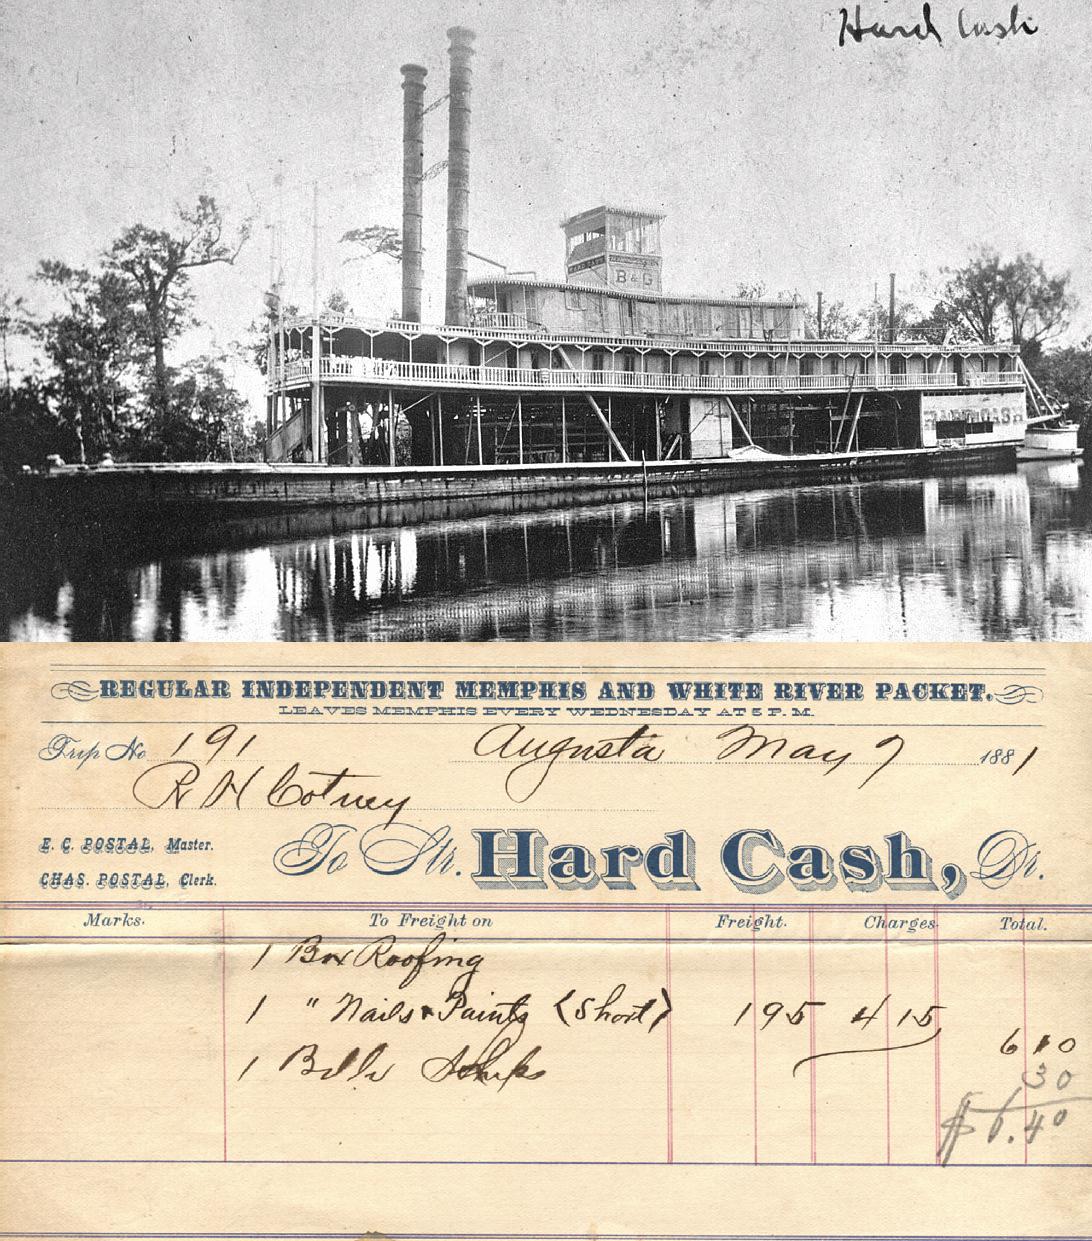 Hard Cash
HARD CASH
B & G
HARD CASH
REGULAR INDEPENDENT MEMPHIS AND WHITE RIVER PACKET.
LEAVES MEMPHIS EVERY WEDNESDAY AT 5 P. M.
Trip No 191 Augusta May 7 1881
R H Cotney
E. C. POSTAL, Master.
To Str. Hard Cash, Dr.
CHAS. POSTAL, Clerk.
Marks. To Freight on Freight. Charges. Total.
1 Box Roofing
1 " Nails & Paints (Short) 195 4 15
6 10
1 Bdle
30
$6.40